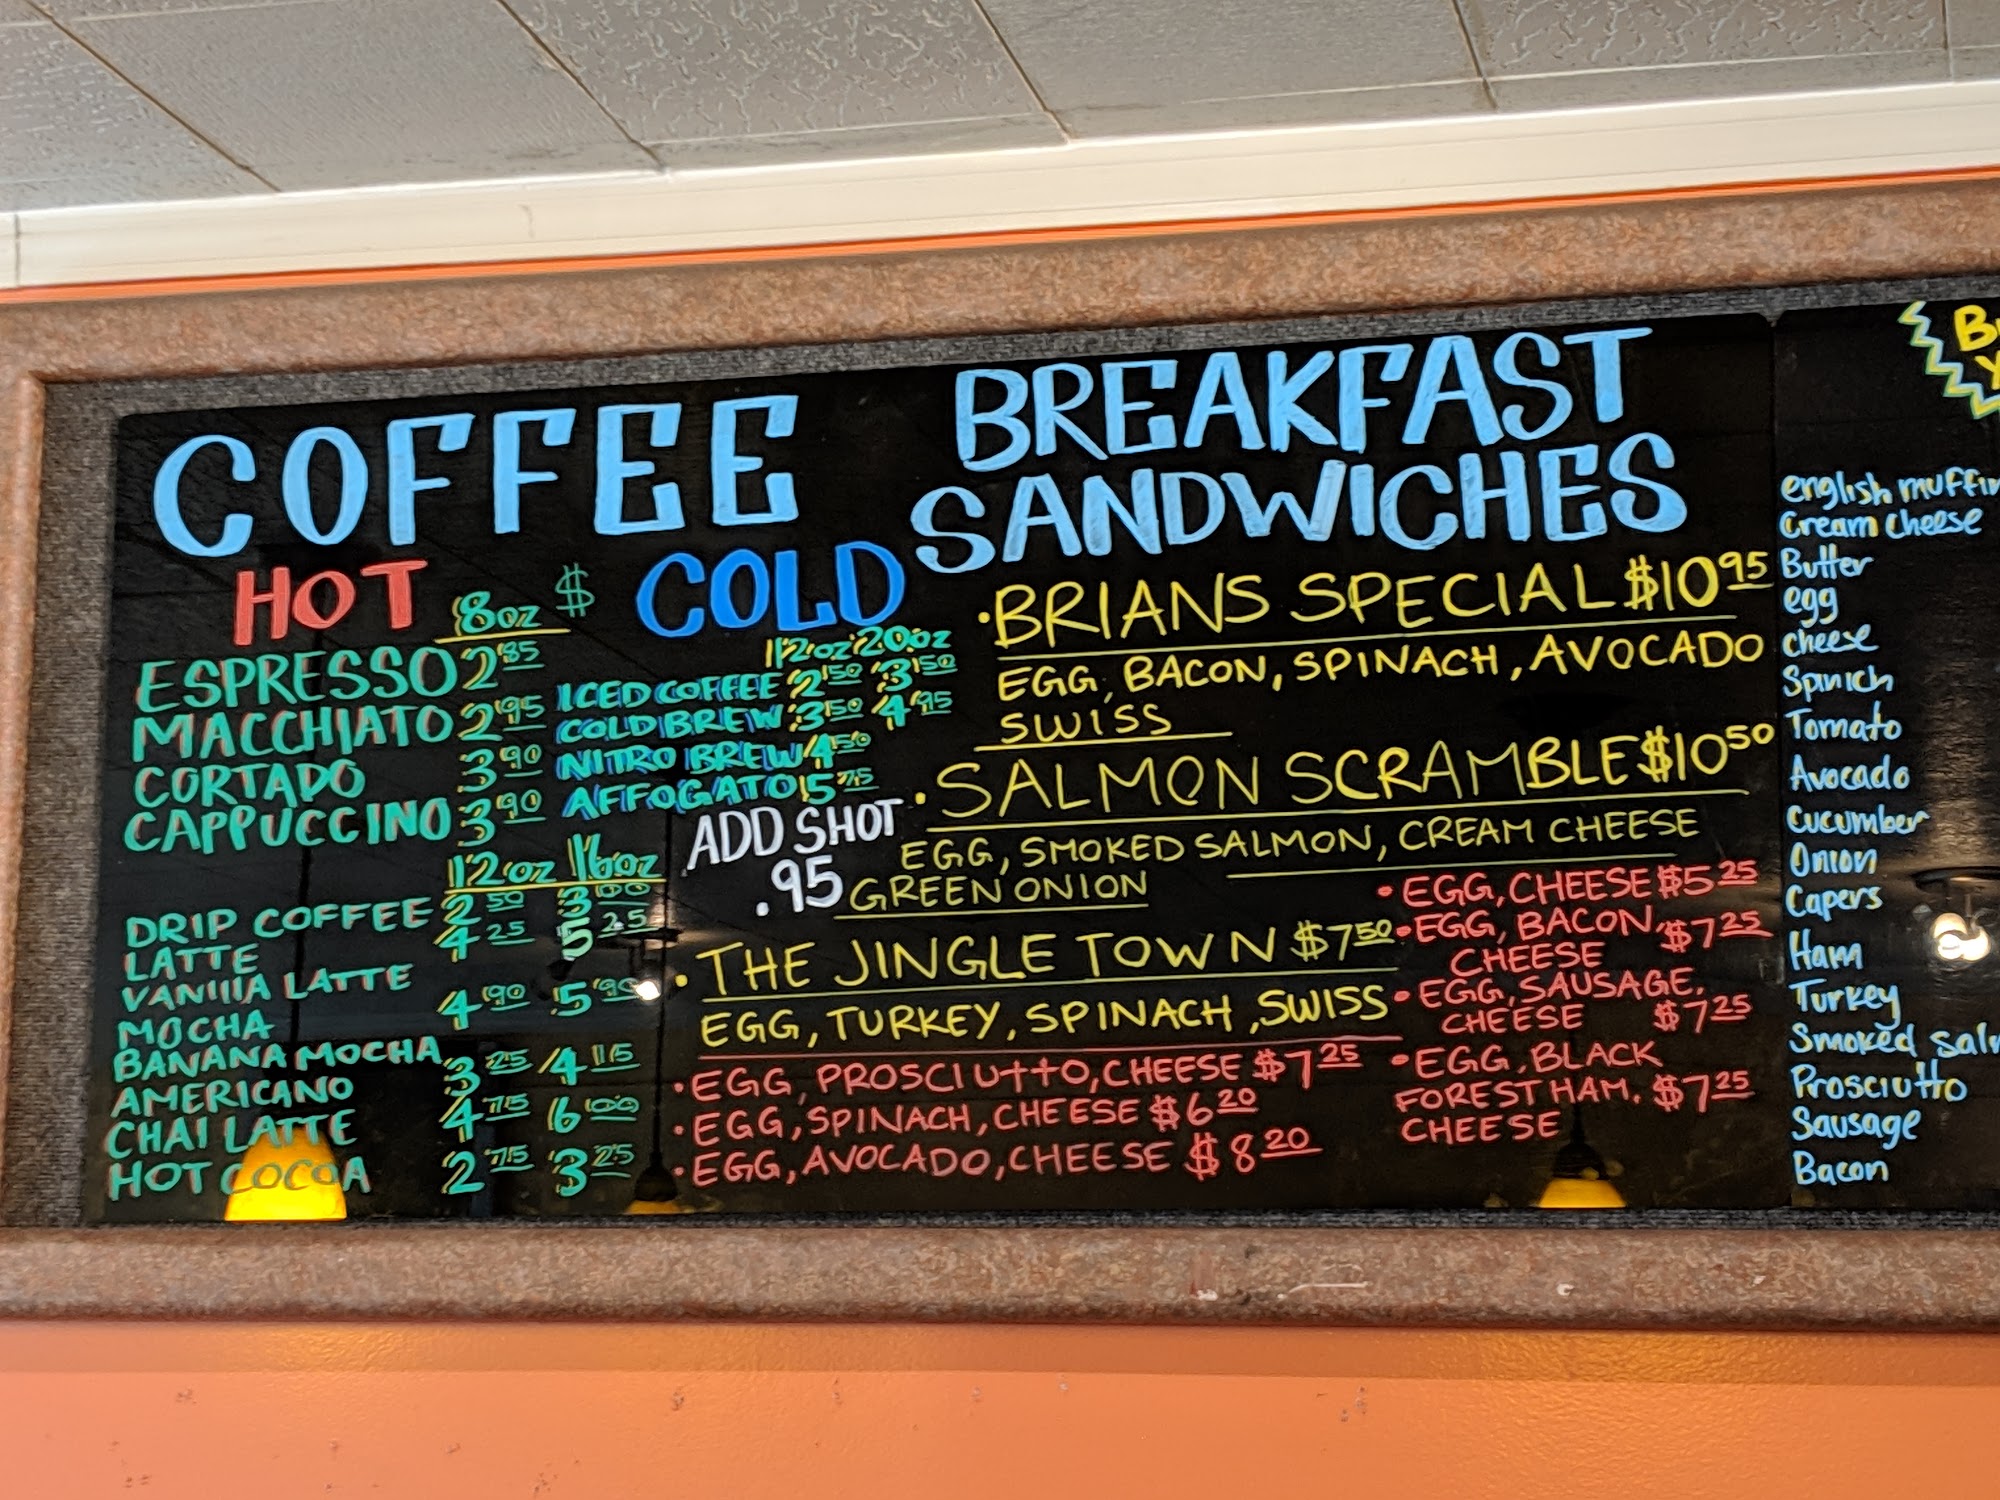 COFFEE
HOT 8oz $
ESPRESSO 2.85
MACCHIATO 2.95
CORTADO 3.90
CAPPUCCINO 3.90
12oz 16oz
DRIP COFFEE 2.50 3.00
LATTE 4.25 5.25
VANIIIA LATTE
MOCHA 4.90 5.90
BANANA MOCHA
AMERICANO 3.25 4.15
CHAI LATTE 4.75 6.00
HOT COCOA 2.75 3.25
COLD
12oz 20oz
ICED COFFEE 2.50 3.50
COLD BREW 3.50 4.95
NITRO BREW 4.50
AFFOGATO 5.75
ADD SHOT
.95
BREAKFAST
SANDWICHES
•BRIANS SPECIAL $10.95
EGG, BACON, SPINACH, AVOCADO
SWISS
•SALMON SCRAMBLE $10.50
EGG, SMOKED SALMON, CREAM CHEESE
GREEN ONION
•THE JINGLE TOWN $7.50
EGG, TURKEY, SPINACH, SWISS
•EGG, PROSCIUttO, CHEESE $7.25
•EGG, SPINACH, CHEESE $6.20
•EGG, AVOCADO, CHEESE $8.20
•EGG, CHEESE $5.25
•EGG, BACON, $7.25
CHEESE
•EGG, SAUSAGE,
CHEESE $7.25
•EGG, BLACK
FOREST HAM, $7.25
CHEESE
english muffin
Cream cheese
Butter
egg
cheese
Spinich
Tomato
Avocado
Cucumber
Onion
Capers
Ham
Turkey
Smoked
Prosciutto
Sausage
Bacon